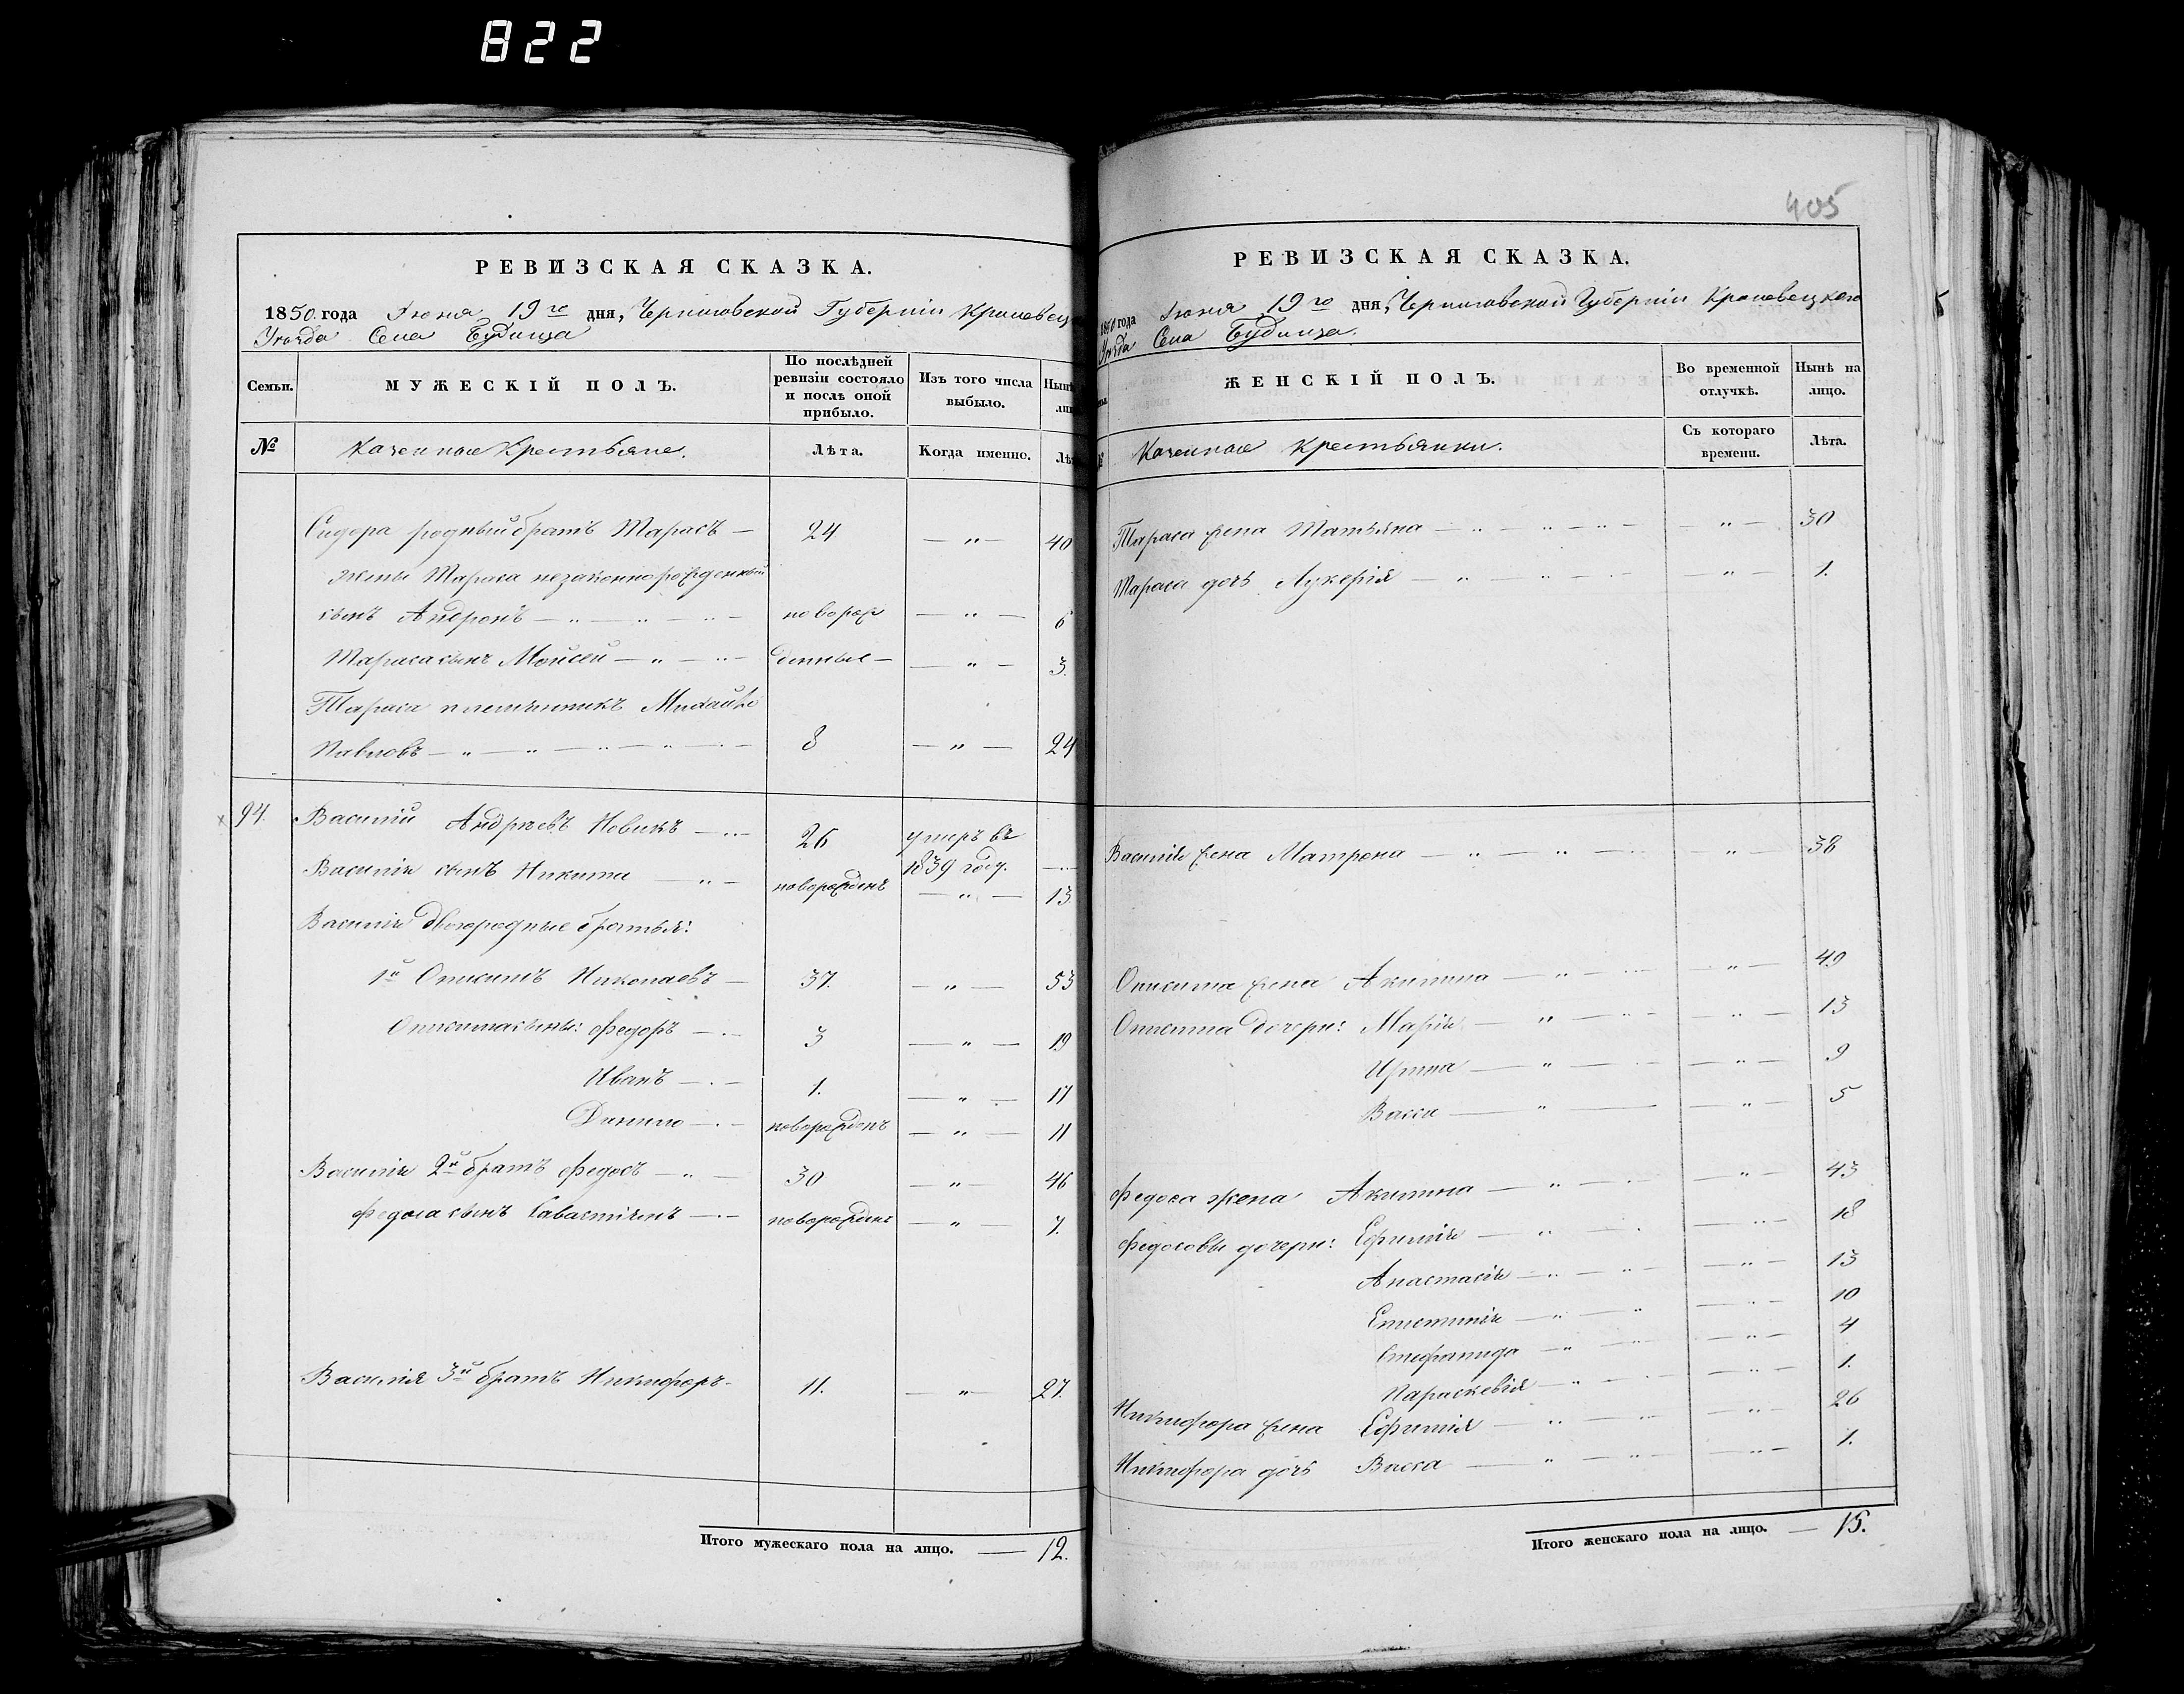 822
РЕВИЗСКАЯ СКАЗКА.
1850 года Іюня 19го дня, Черниговской Губерніи Кролевец
Уѣзда Села Будища
Семьи.
МУЖЕСКІЙ ПОЛЪ.
По послѣдней
ревизіи состояло
и послѣ оной
прибыло.
Изъ того числа
выбыло.
Нынѣ
лиц
№
Казенные Крестьяне.
Лѣта.
Когда именно.
Лѣт
Сидора родный братъ Тарасъ — 24 — " — 40
жены Тараса незаконнорожденный
сынъ Андронъ — новорож — " — 6
Тараса сынъ Мойсей — " — денные — — " — 3.
Тараса племянникъ Михайло
Павловъ — " — 8 — " — 24
94. Василій Андреевъ Новикъ — 26 умеръ въ
1839 году. —
Василія сынъ Никита — " — новорожденъ — " — 13
Василія двоюродные братья:
1й Онисимъ Николаевъ — 37. — " — 53
Онисима сыны: Федоръ — 3 — " — 19
Иванъ — 1. — " — 17
Данило — новорожденъ — " — 11
Василія 2й братъ Федосъ — " — 30 — " — 46
Федоса сынъ Савастіянъ — новорожденъ — " — 7.
Василія 3й братъ Никифоръ — 11. — " — 27.
Итого мужескаго пола на лицо. — 12.
405
РЕВИЗСКАЯ СКАЗКА.
1850 года Іюня 19го дня, Черниговской Губерніи Кролевецкаго
Уѣзда Села Будища.
ЖЕНСКІЙ ПОЛЪ.
Во временной
отлучкѣ.
Нынѣ на
лицо.
Казенные Крестьянки.
Съ котораго
времени.
Лѣта.
Тараса жена Татьяна — " — " — 30
Тараса дочь Лукерія — " — " — 1.
Василія жена Матрона — " — " — 38
Онисима жена Акилина — " — " — 49
Онисима дочери: Марія — " — " — 13
Ирина — " — " — 9
Васса — " — " — 5
Федоса жена Акилина — " — " — 43
Федосовы дочери: Ефимія — " — " — 18
Анастасія — " — " — 13
Епистимія — " — " — 10
Стефанида — " — " — 4
Параскевія — " — " — 1.
Никифора жена Ефимія — " — " — 26
Никифора дочь Васса — " — " — 1.
Итого женскаго пола на лицо. — 15.